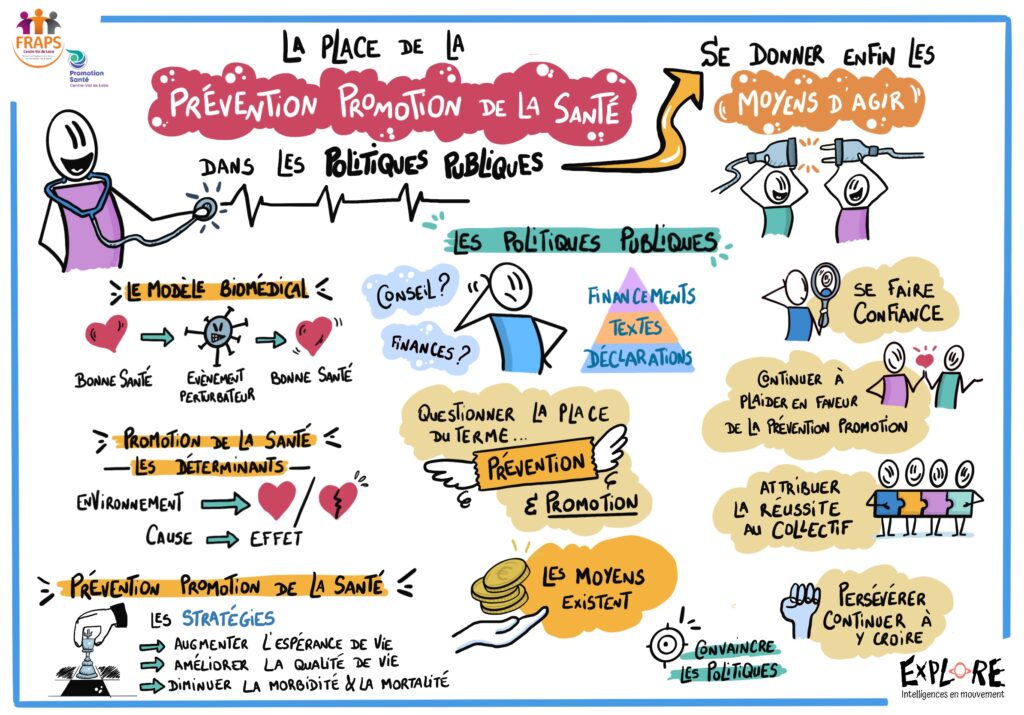 FRAPS
Centre-Val de Loire
Promotion
Santé
Centre-Val de Loire
LA PLACE DE LA
PRÉVENTION PROMOTION DE LA SANTÉ
DANS LES POLITIQUES PUBLIQUES
SE DONNER ENFIN LES
MOYENS D'AGIR
LE MODÈLE BIOMÉDICAL
BONNE SANTÉ
EVÈNEMENT
PERTURBATEUR
BONNE SANTÉ
PROMOTION DE LA SANTÉ
LES DÉTERMINANTS
ENVIRONNEMENT
CAUSE
EFFET
PRÉVENTION PROMOTION DE LA SANTÉ
LES STRATÉGIES
AUGMENTER L'ESPÉRANCE DE VIE
AMÉLIORER LA QUALITÉ DE VIE
DIMINUER LA MORBIDITÉ & LA MORTALITÉ
LES POLITIQUES PUBLIQUES
CONSEIL?
FINANCES?
FINANCEMENTS
TEXTES
DÉCLARATIONS
QUESTIONNER LA PLACE
DU TERME...
PRÉVENTION
& PROMOTION
€
LES MOYENS
EXISTENT
CONVAINCRE
LES POLITIQUES
SE FAIRE
CONFIANCE
CONTINUER À
PLAIDER EN FAVEUR
DE LA PRÉVENTION PROMOTION
ATTRIBUER
LA RÉUSSITE
AU COLLECTIF
PERSÉVÉRER
CONTINUER À
Y CROIRE
EXPLORE
Intelligences en mouvement